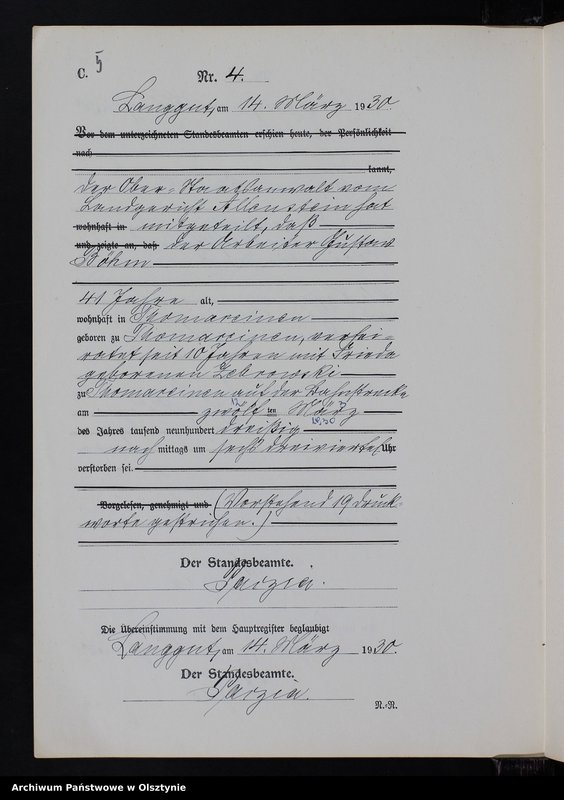 C. 5
Nr. 4.
Langgut, am 14. März 1930.
Vor dem unterzeichneten Standesbeamten erschien heute, der Persönlichkeit
nach
kannt,
Der Ober-Staatsanwalt vom
Landgericht Allenstein hat
wohnhaft in mitgeteilt, daß
und zeigte an, daß der Arbeiter Gustav
Böhm
41 Jahre alt,
wohnhaft in Thomareinen
geboren zu Thomareinen, verhei-
ratet seit 10 Jahren mit Frieda
geborenen
zu Thomareinen auf der Bahnstrecke
am zwölften März
12 3
des Jahres tausend neunhundert dreißig
1930
nach mittags um sechs dreiviertel Uhr
verstorben sei.
Vorgelesen, genehmigt und (Vorstehend 19 Druck-
worte gestrichen.)
Der Standesbeamte.
Die Übereinstimmung mit dem Hauptregister beglaubigt
Langgut, am 14. März 1930.
Der Standesbeamte.
N.-R.
Archiwum Państwowe w Olsztynie